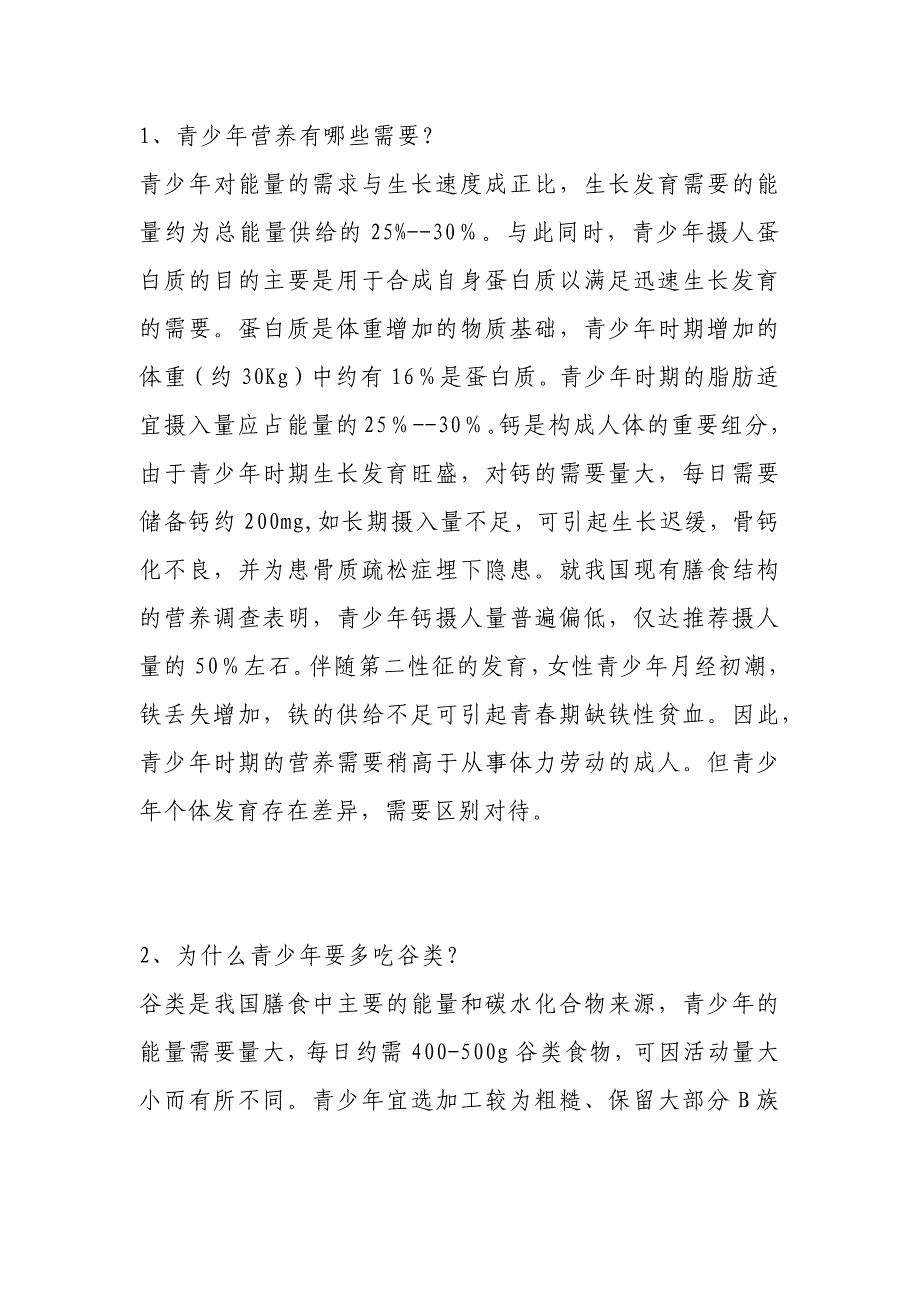 1、青少年营养有哪些需要？
青少年对能量的需求与生长速度成正比，生长发育需要的能
量约为总能量供给的25%--30%。与此同时，青少年摄人蛋
白质的目的主要是用于合成自身蛋白质以满足迅速生长发育
的需要。蛋白质是体重增加的物质基础，青少年时期增加的
体重（约30Kg）中约有16%是蛋白质。青少年时期的脂肪适
宜摄入量应占能量的25%--30%。钙是构成人体的重要组分，
由于青少年时期生长发育旺盛，对钙的需要量大，每日需要
储备钙约200mg,如长期摄入量不足，可引起生长迟缓，骨钙
化不良，并为患骨质疏松症埋下隐患。就我国现有膳食结构
的营养调查表明，青少年钙摄人量普遍偏低，仅达推荐摄人
量的50%左石。伴随第二性征的发育，女性青少年月经初潮，
铁丢失增加，铁的供给不足可引起青春期缺铁性贫血。因此，
青少年时期的营养需要稍高于从事体力劳动的成人。但青少
年个体发育存在差异，需要区别对待。
2、为什么青少年要多吃谷类？
谷类是我国膳食中主要的能量和碳水化合物来源，青少年的
能量需要量大，每日约需400-500g谷类食物，可因活动量大
小而有所不同。青少年宜选加工较为粗糙、保留大部分B族